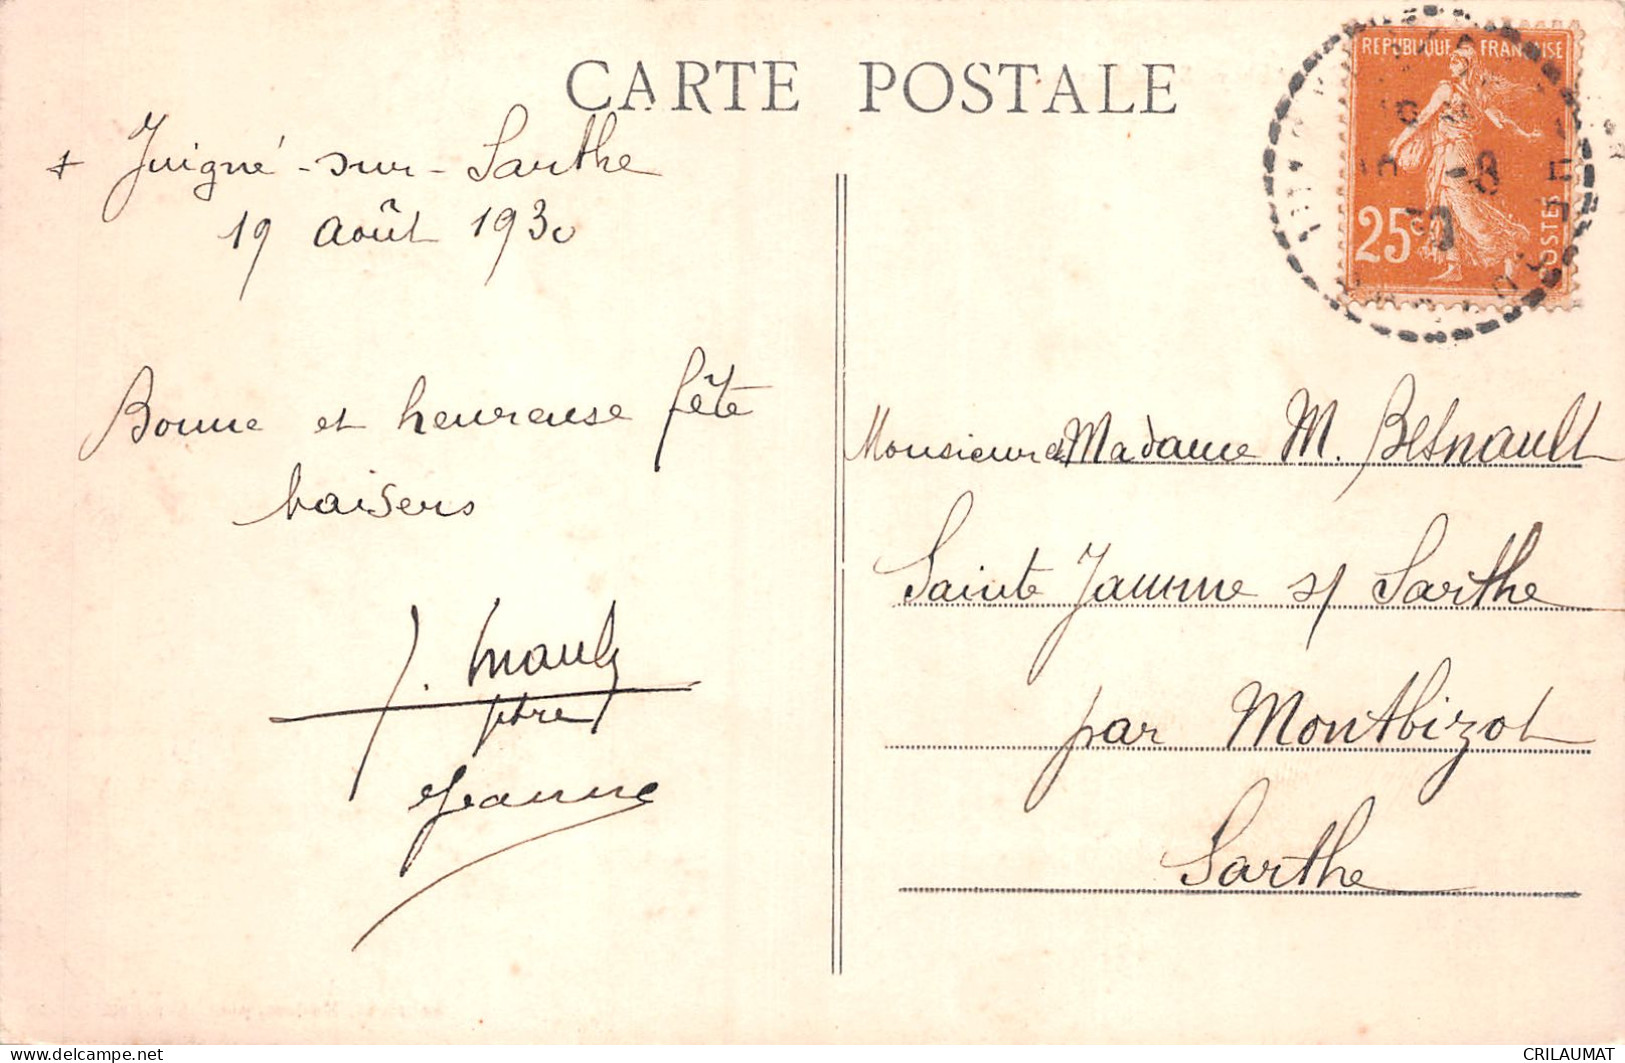 CARTE POSTALE
+ Juigné-sur-Sarthe
19 Août 1930
Bonne et heureuse fête
baisers
J.
ptre
Jeanne
REPUBLIQUE FRANÇAISE
25c
POSTES
Monsieur et Madame M. Besnault
Sainte Jamme s/ Sarthe
par Montbizot
Sarthe
CRILAUMAT